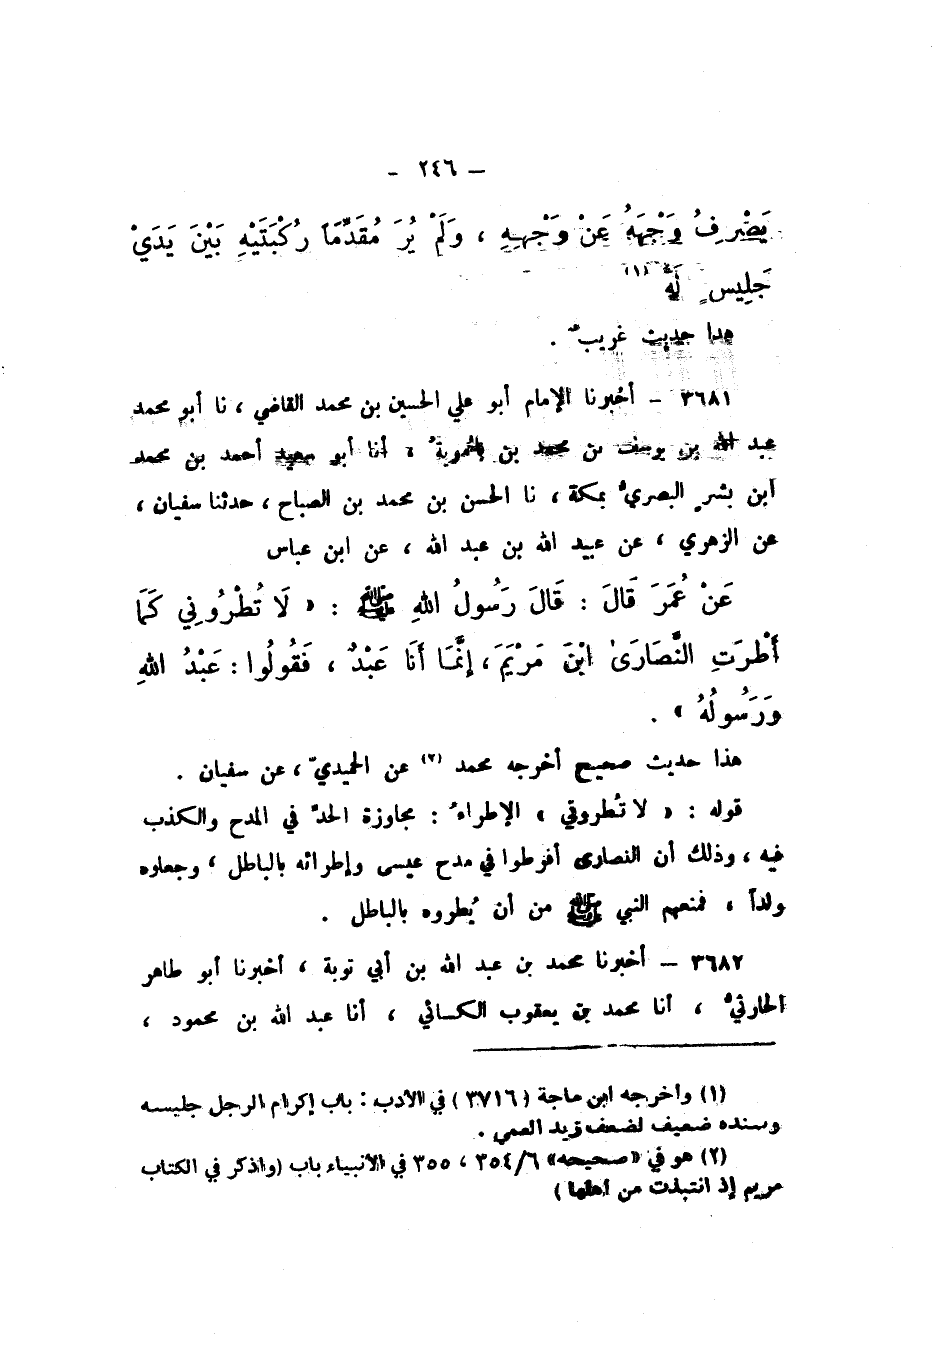 – ٢٤٦ –
يَصْرِفُ وَجْهَهُ عَنْ وَجْهِهِ ، وَلَمْ يُرَ مُقَدِّمًا رُكْبَتَيْهِ بَيْنَ يَدَيْ
جَلِيسٍ لَهُ (١)
هذا حديث غريبٌ .
٣٦٨١ – أخبرنا الإمام أبو علي الحسين بن محمد القاضي ، نا أبو محمد
عبد الله بن يوسف بن محمد بن بامُويةَ ، أنا أبو سعيد أحمد بن محمد
ابن بشرٍ البصريُّ بمكة ، نا الحسن بن محمد بن الصباح ، حدثنا سفيان ،
عن الزهري ، عن عبيد الله بن عبد الله ، عن ابن عباس
عَنْ عُمَرَ قَالَ : قَالَ رَسُولُ اللهِ ﷺ : « لَا تُطْرُونِي كَمَا
أَطْرَتِ النَّصَارَىٰ ابْنَ مَرْيَمَ ، إِنَّمَا أَنَا عَبْدٌ ، فَقُولُوا : عَبْدُ اللهِ
وَرَسُولُهُ » .
هذا حديث صحيح أخرجه محمد (٢) عن الحميديّ ، عن سفيان .
قوله : « لا تُطروني » الإطراءُ : مجاوزة الحدِّ في المدح والكذب
فيه ، وذلك أن النصارى أفرطوا في مدح عيسى وإطرائه بالباطل ، وجعلوه
ولداً ، فمنعهم النبي ﷺ من أن يُطروه بالباطل .
٣٦٨٢ – أخبرنا محمد بن عبد الله بن أبي توبة ، أخبرنا أبو طاهر
الحارثيُّ ، أنا محمد بن يعقوب الكسائي ، أنا عبد الله بن محمود ،
(١) وأخرجه ابن ماجة (٣٧١٦) في الأدب : باب إكرام الرجل جليسه
وسنده ضعيف لضعف زيد العمي .
(٢) هو في «صحيحه» ٣٥٤/٦ ، ٣٥٥ في الأنبياء باب (واذكر في الكتاب
مريم إذ انتبذت من أهلها)